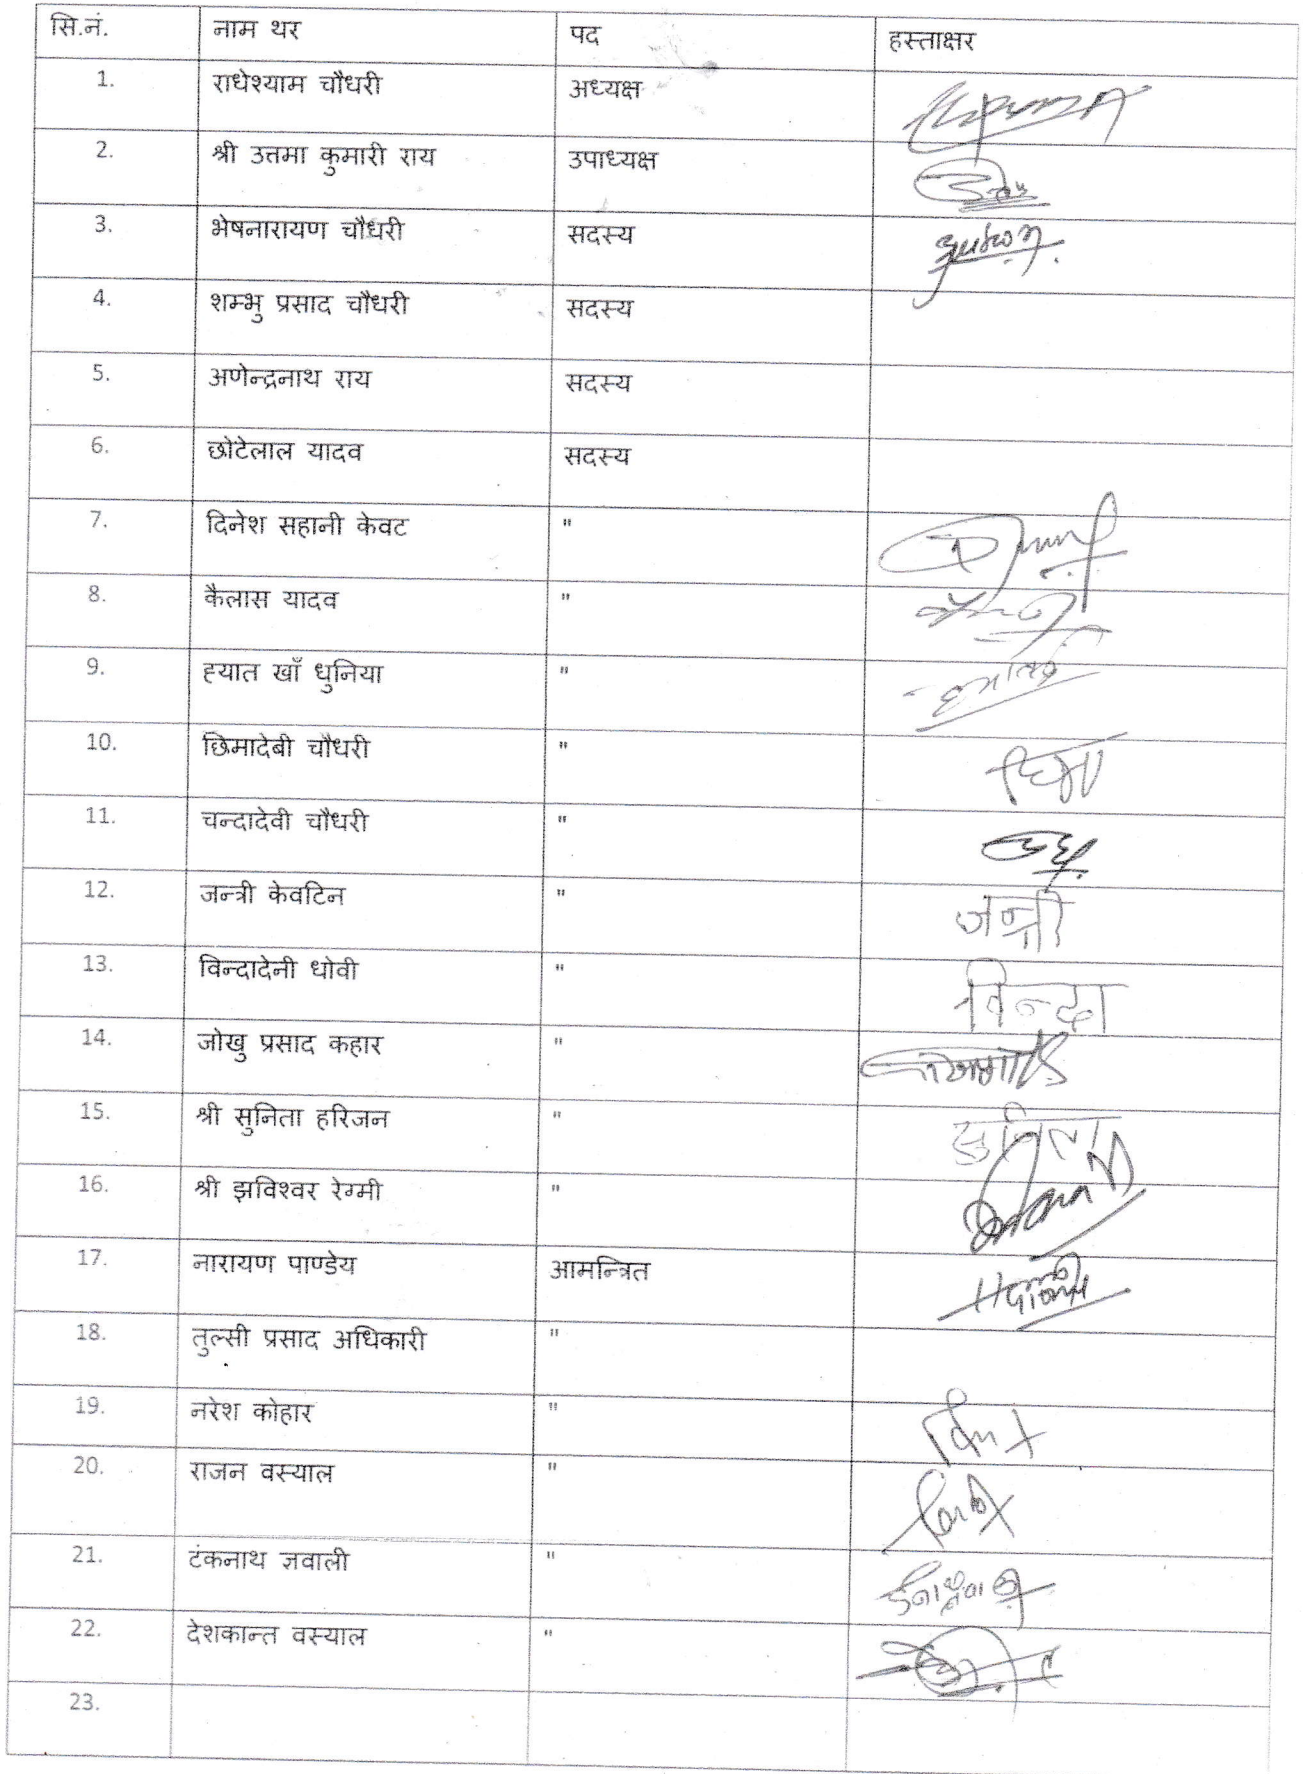 सि.नं. नाम थर पद हस्ताक्षर
1. राधेश्याम चौधरी अध्यक्ष
2. श्री उत्तमा कुमारी राय उपाध्यक्ष
3. भेषनारायण चौधरी सदस्य
4. शम्भु प्रसाद चौधरी सदस्य
5. अणेन्द्रनाथ राय सदस्य
6. छोटेलाल यादव सदस्य
7. दिनेश सहानी केवट "
8. कैलास यादव "
9. ह्यात खाँ धुनिया "
10. छिमादेबी चौधरी " छिमा
11. चन्दादेवी चौधरी "
12. जन्त्री केवटिन " जन्त्री
13. विन्दादेनी धोवी " विन्दा
14. जोखु प्रसाद कहार "
15. श्री सुनिता हरिजन " सुनिता
16. श्री झविश्वर रेग्मी "
17. नारायण पाण्डेय आमन्त्रित
18. तुल्सी प्रसाद अधिकारी "
19. नरेश कोहार "
20. राजन वस्याल "
21. टंकनाथ ज्ञवाली "
22. देशकान्त वस्याल "
23.